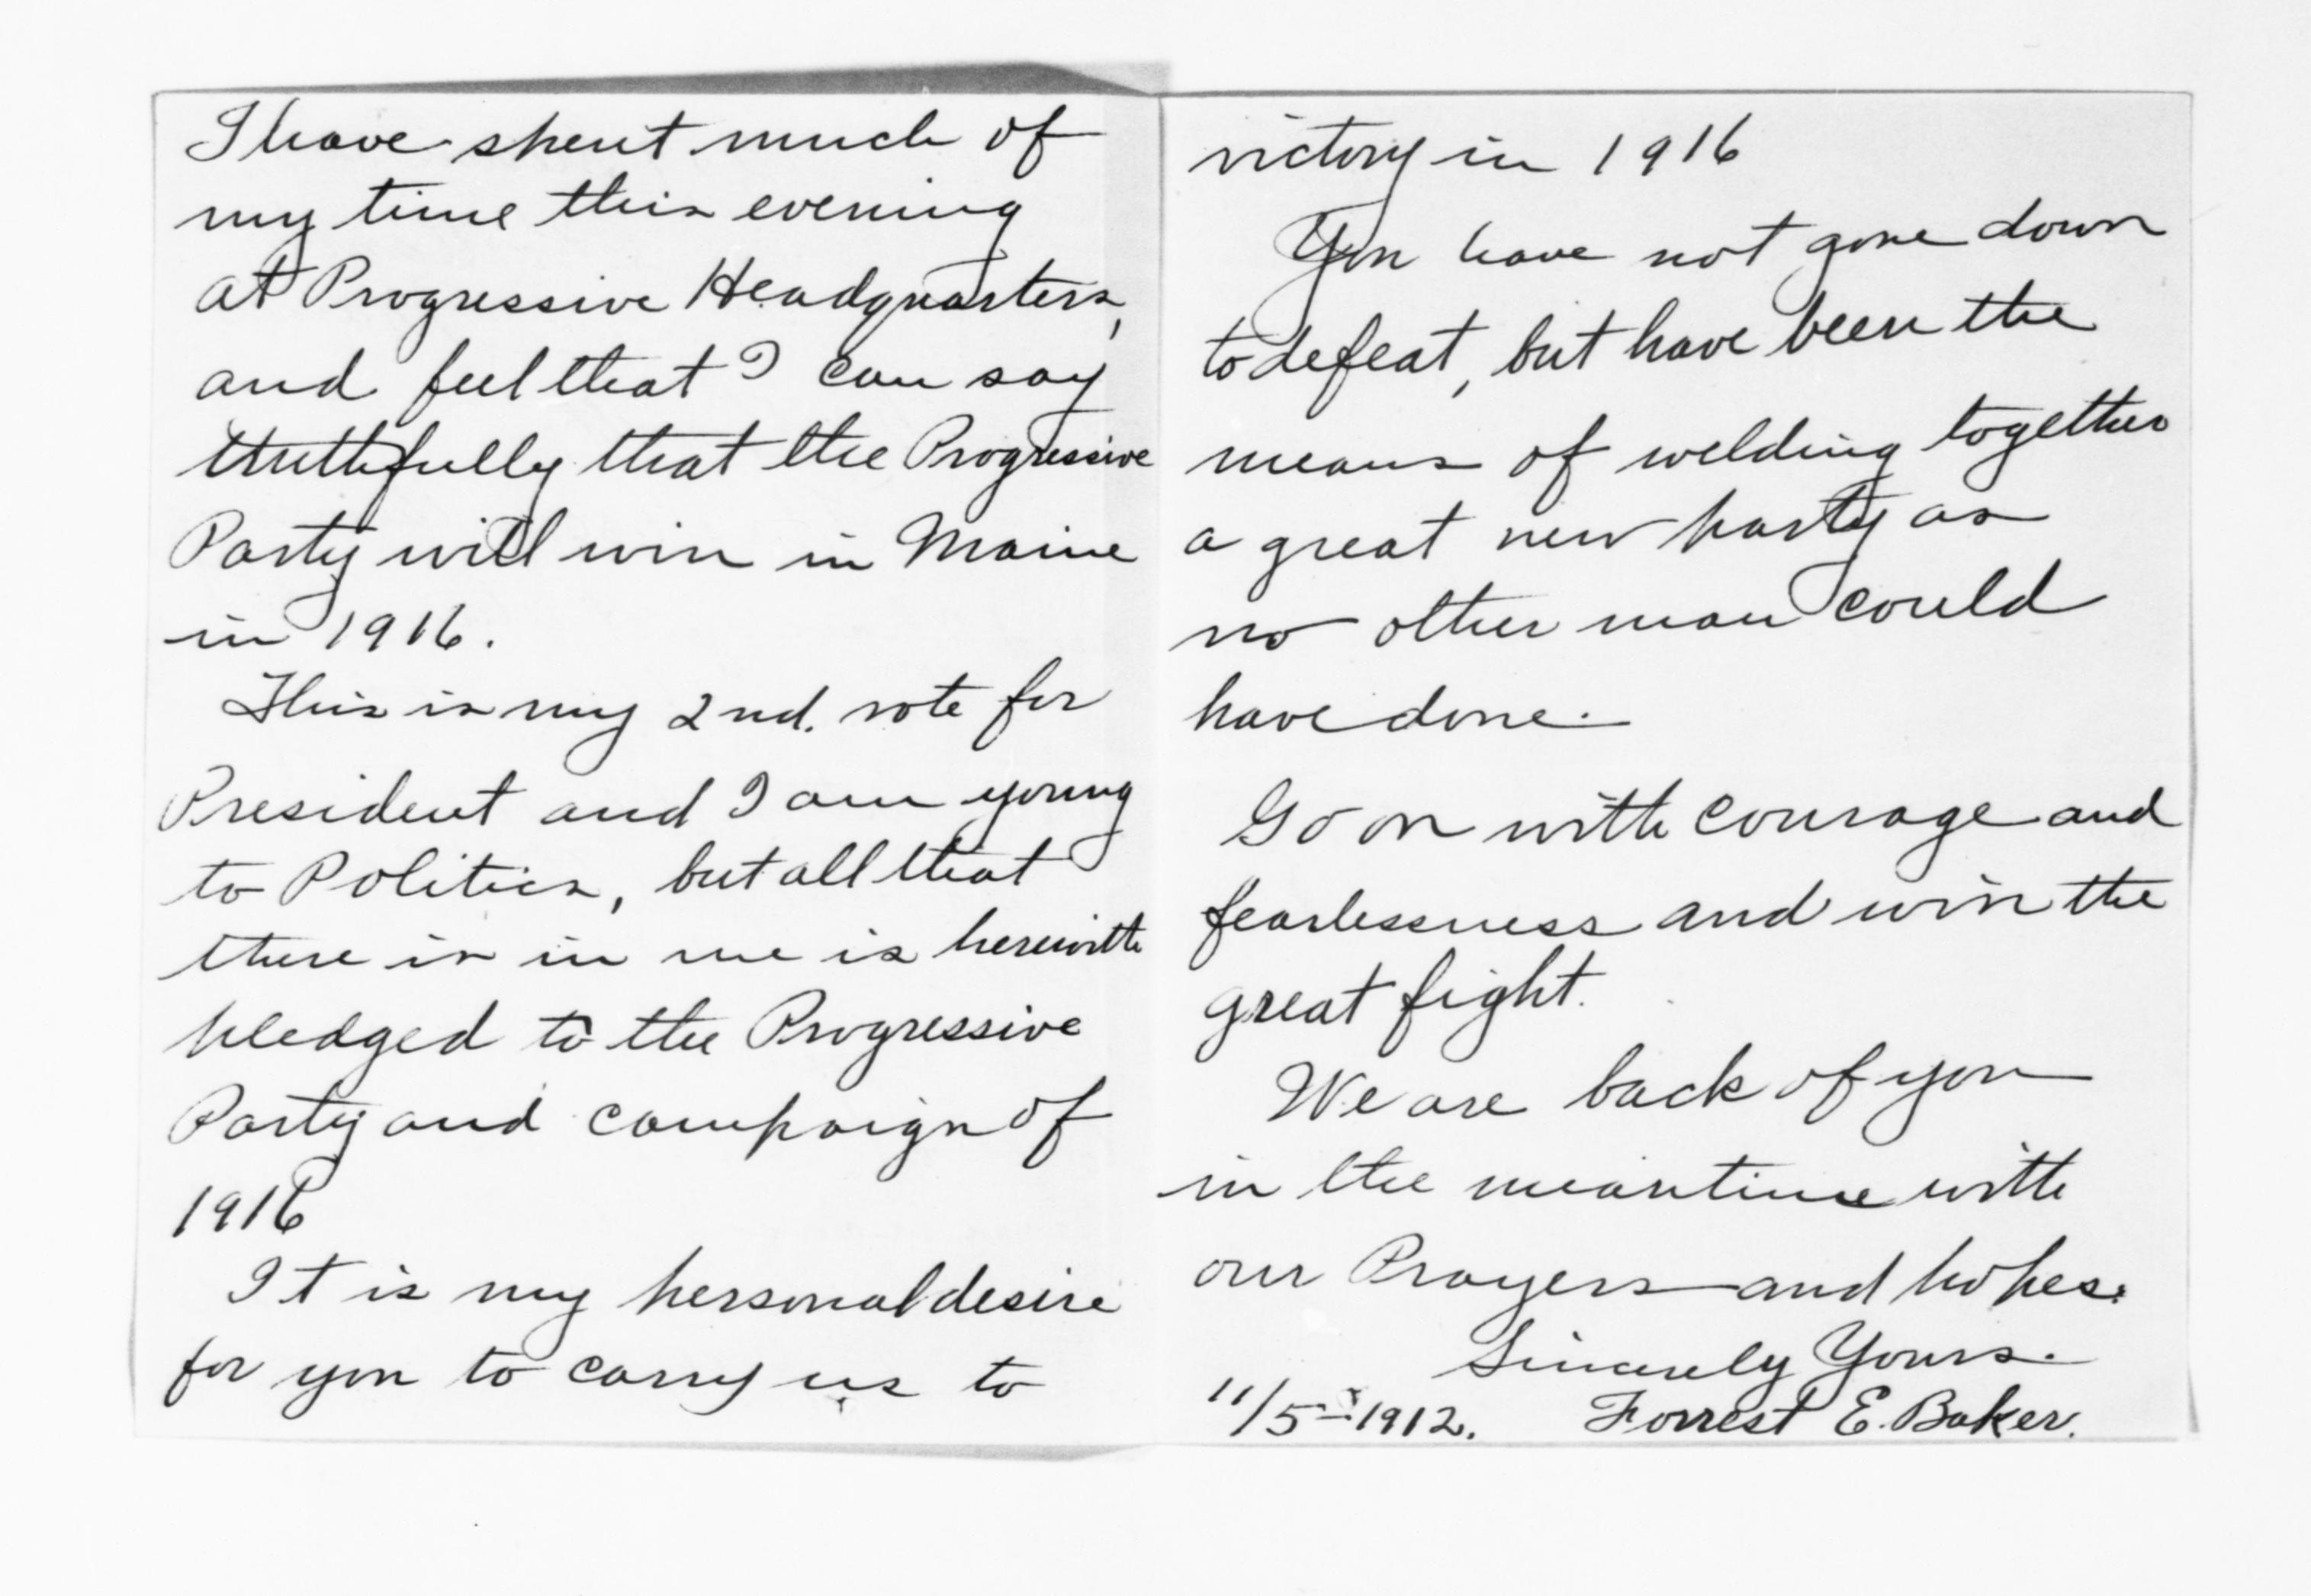 I have spent much of
my time this evening
at Progressive Headquarters,
and feel that I can say
truthfully that the Progressive
Party will win in Maine
in 1916.
This is my 2nd. vote for
President and I am young
to Politics, but all that
there is in me is herewith
pledged to the Progressive
Party and campaign of
1916
It is my personal desire
for you to carry us to
victory in 1916
You have not gone down
to defeat, but have been the
means of welding together
a great new party as
no other man could
have done.
Go on with courage and
fearlessness and win the
great fight.
We are back of you
in the meantime with
our Prayers and hopes.
Sincerely Yours.
11/5-1912. Forrest E. Baker.